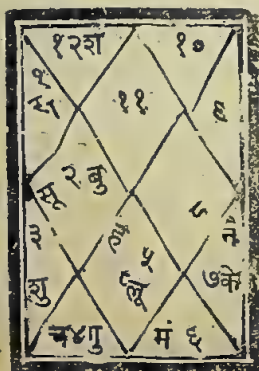 १२श १०
१
रा ११ ९
सू २ बु ८
३
शु ५ ७के
च ४गु मं ६